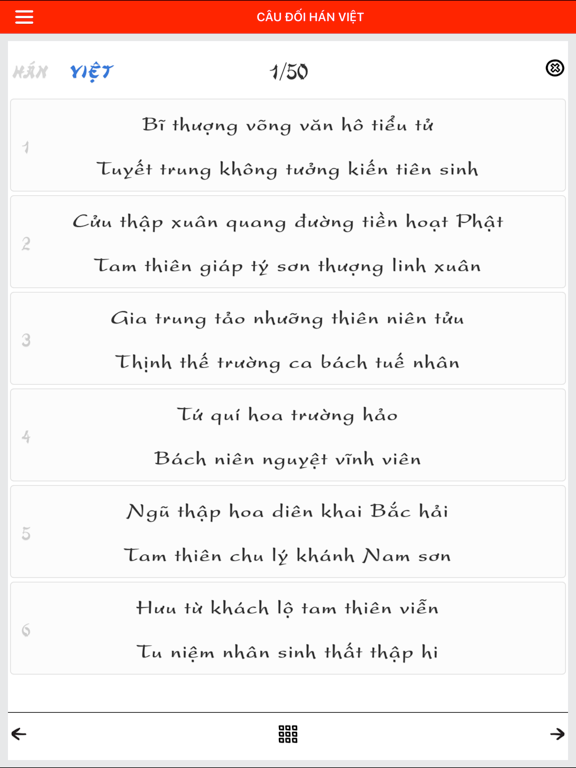 CÂU ĐỐI HÁN VIỆT
HÁN VIỆT 1/50
1
Bĩ thượng võng văn hô tiểu tử
Tuyết trung không tưởng kiến tiên sinh
2
Cửu thập xuân quang đường tiền hoạt Phật
Tam thiên giáp tý sơn thượng linh xuân
3
Gia trung tảo nhưỡng thiên niên tửu
Thịnh thế trường ca bách tuế nhân
4
Tứ quí hoa trường hảo
Bách niên nguyệt vĩnh viên
5
Ngũ thập hoa diên khai Bắc hải
Tam thiên chu lý khánh Nam sơn
6
Hưu từ khách lộ tam thiên viễn
Tu niệm nhân sinh thất thập hi